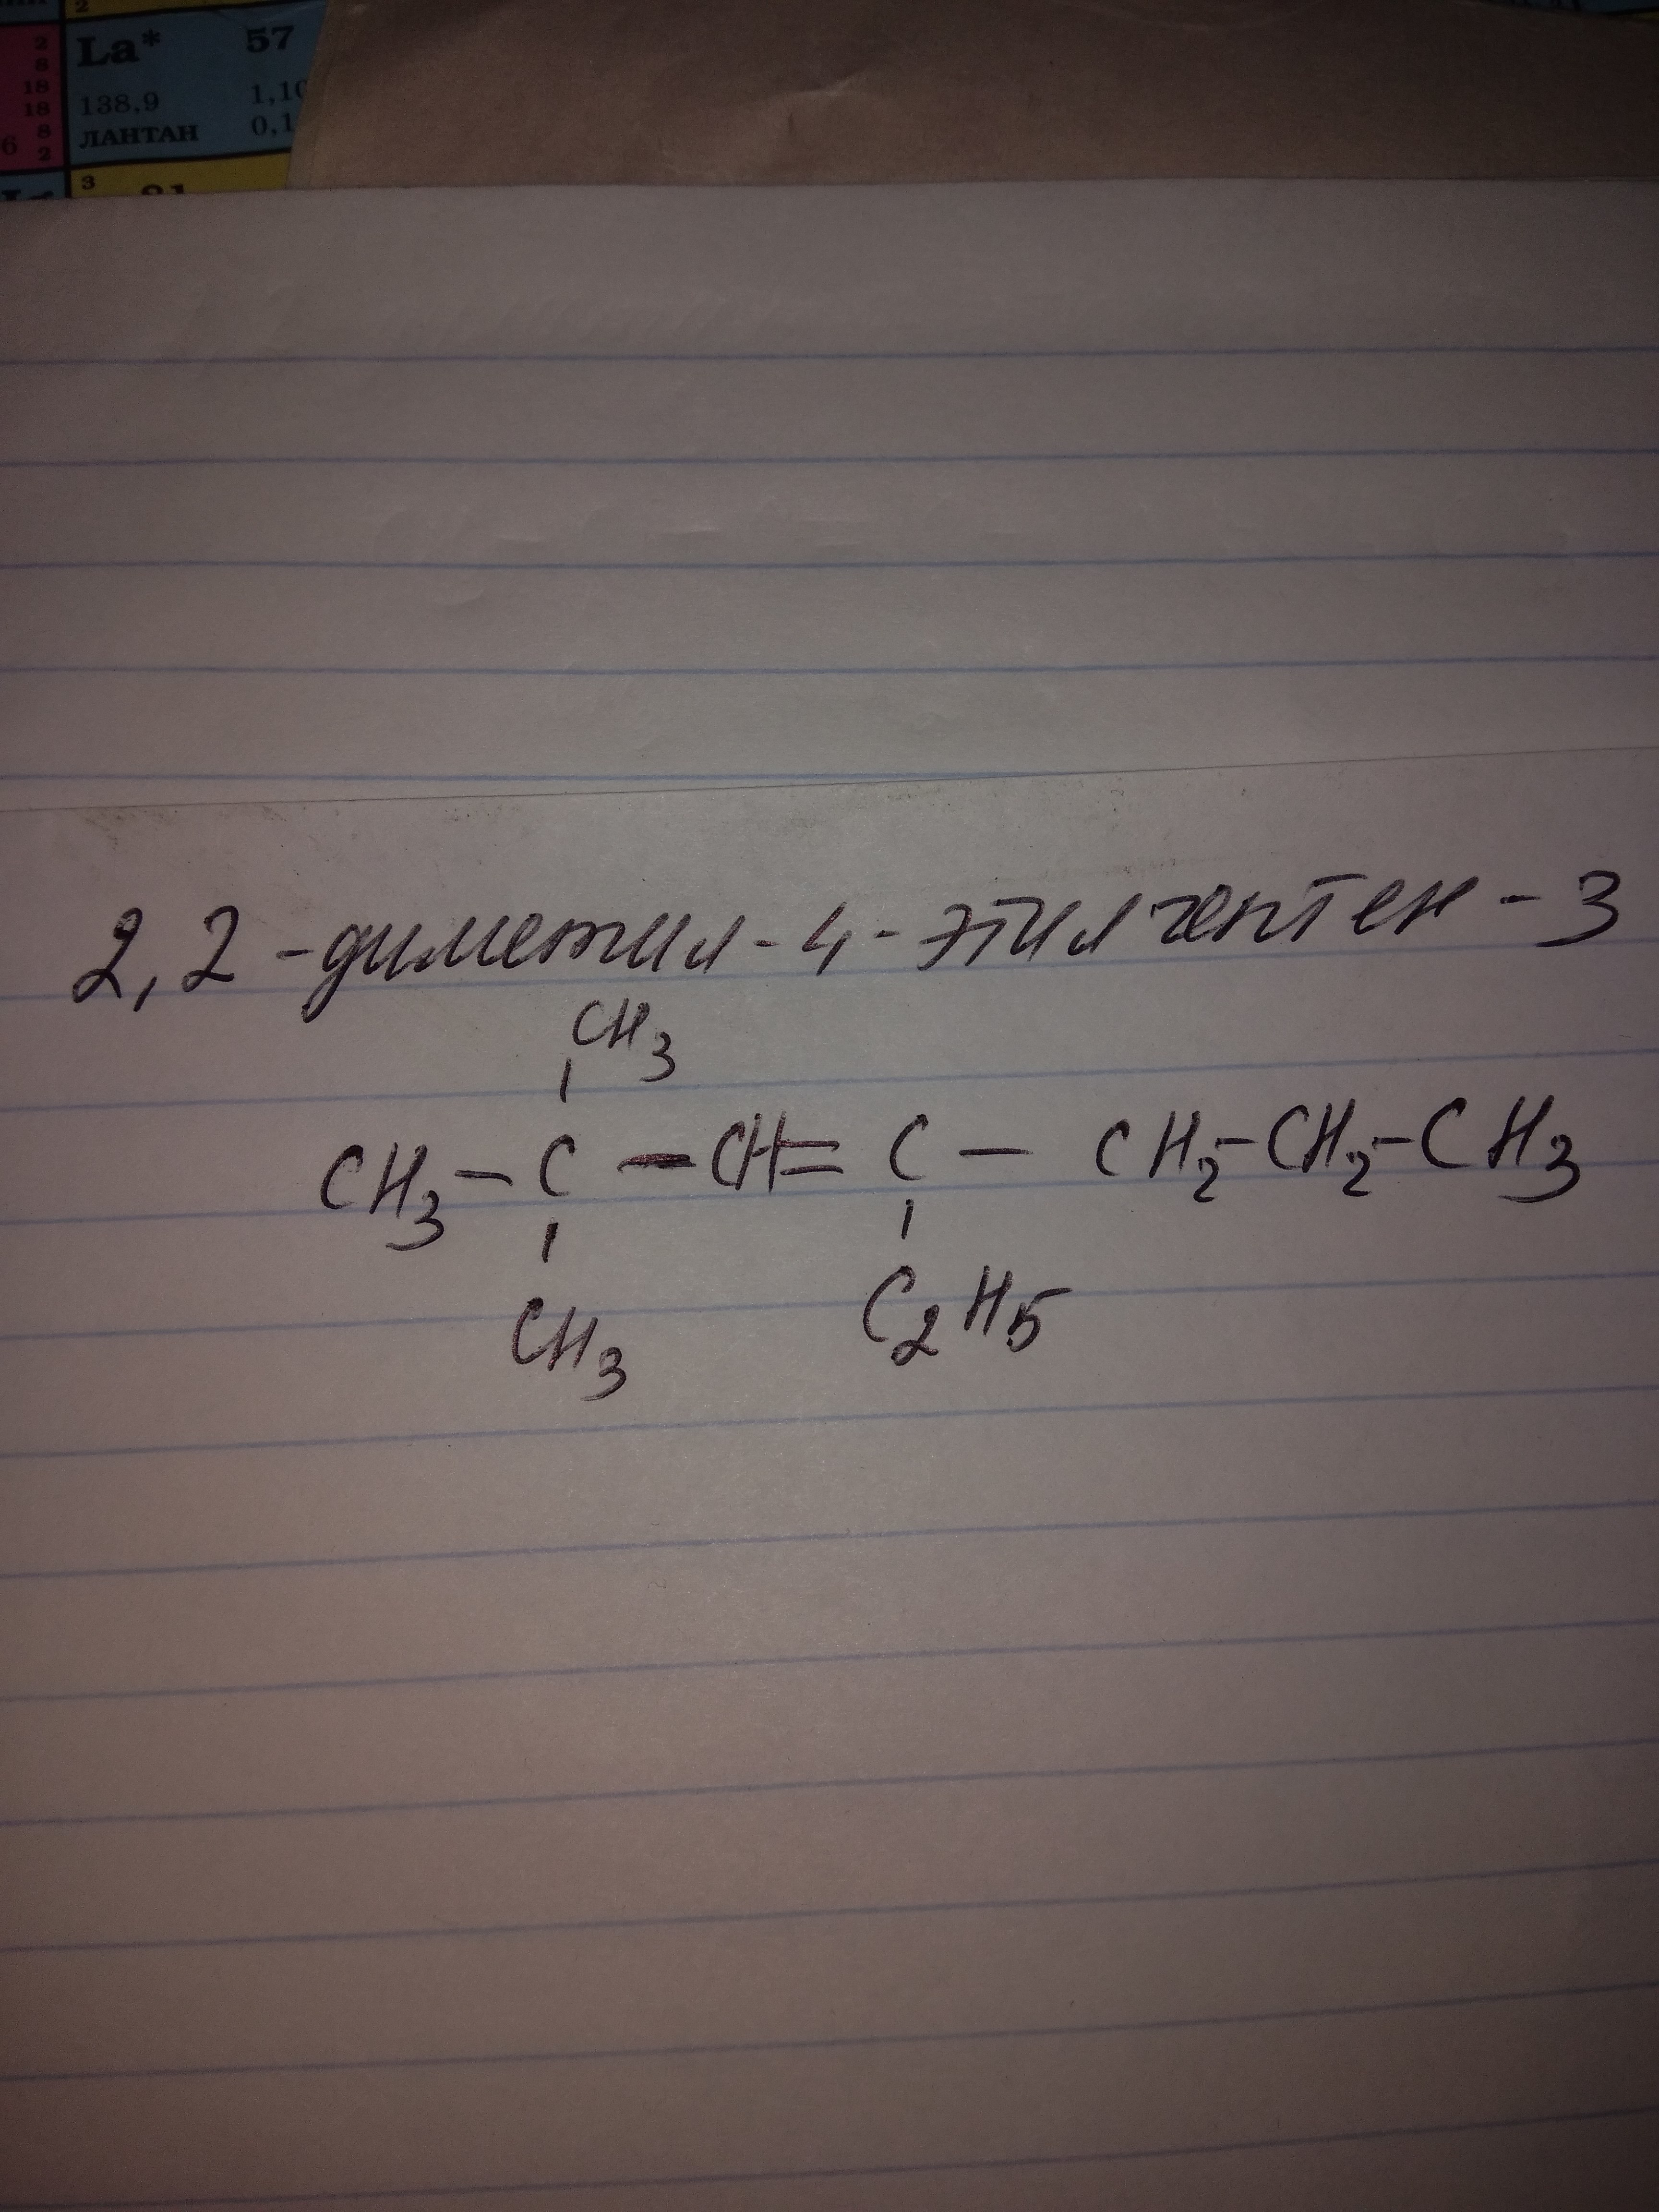 2
8
18
18
8
2
6
La* 57
138,9 1,10
ЛАНТАН 0,1
2
3
2,2-диметил-4-этилгептен-3
CH3
CH3-C-CH=C-CH2-CH2-CH3
CH3 C2H5